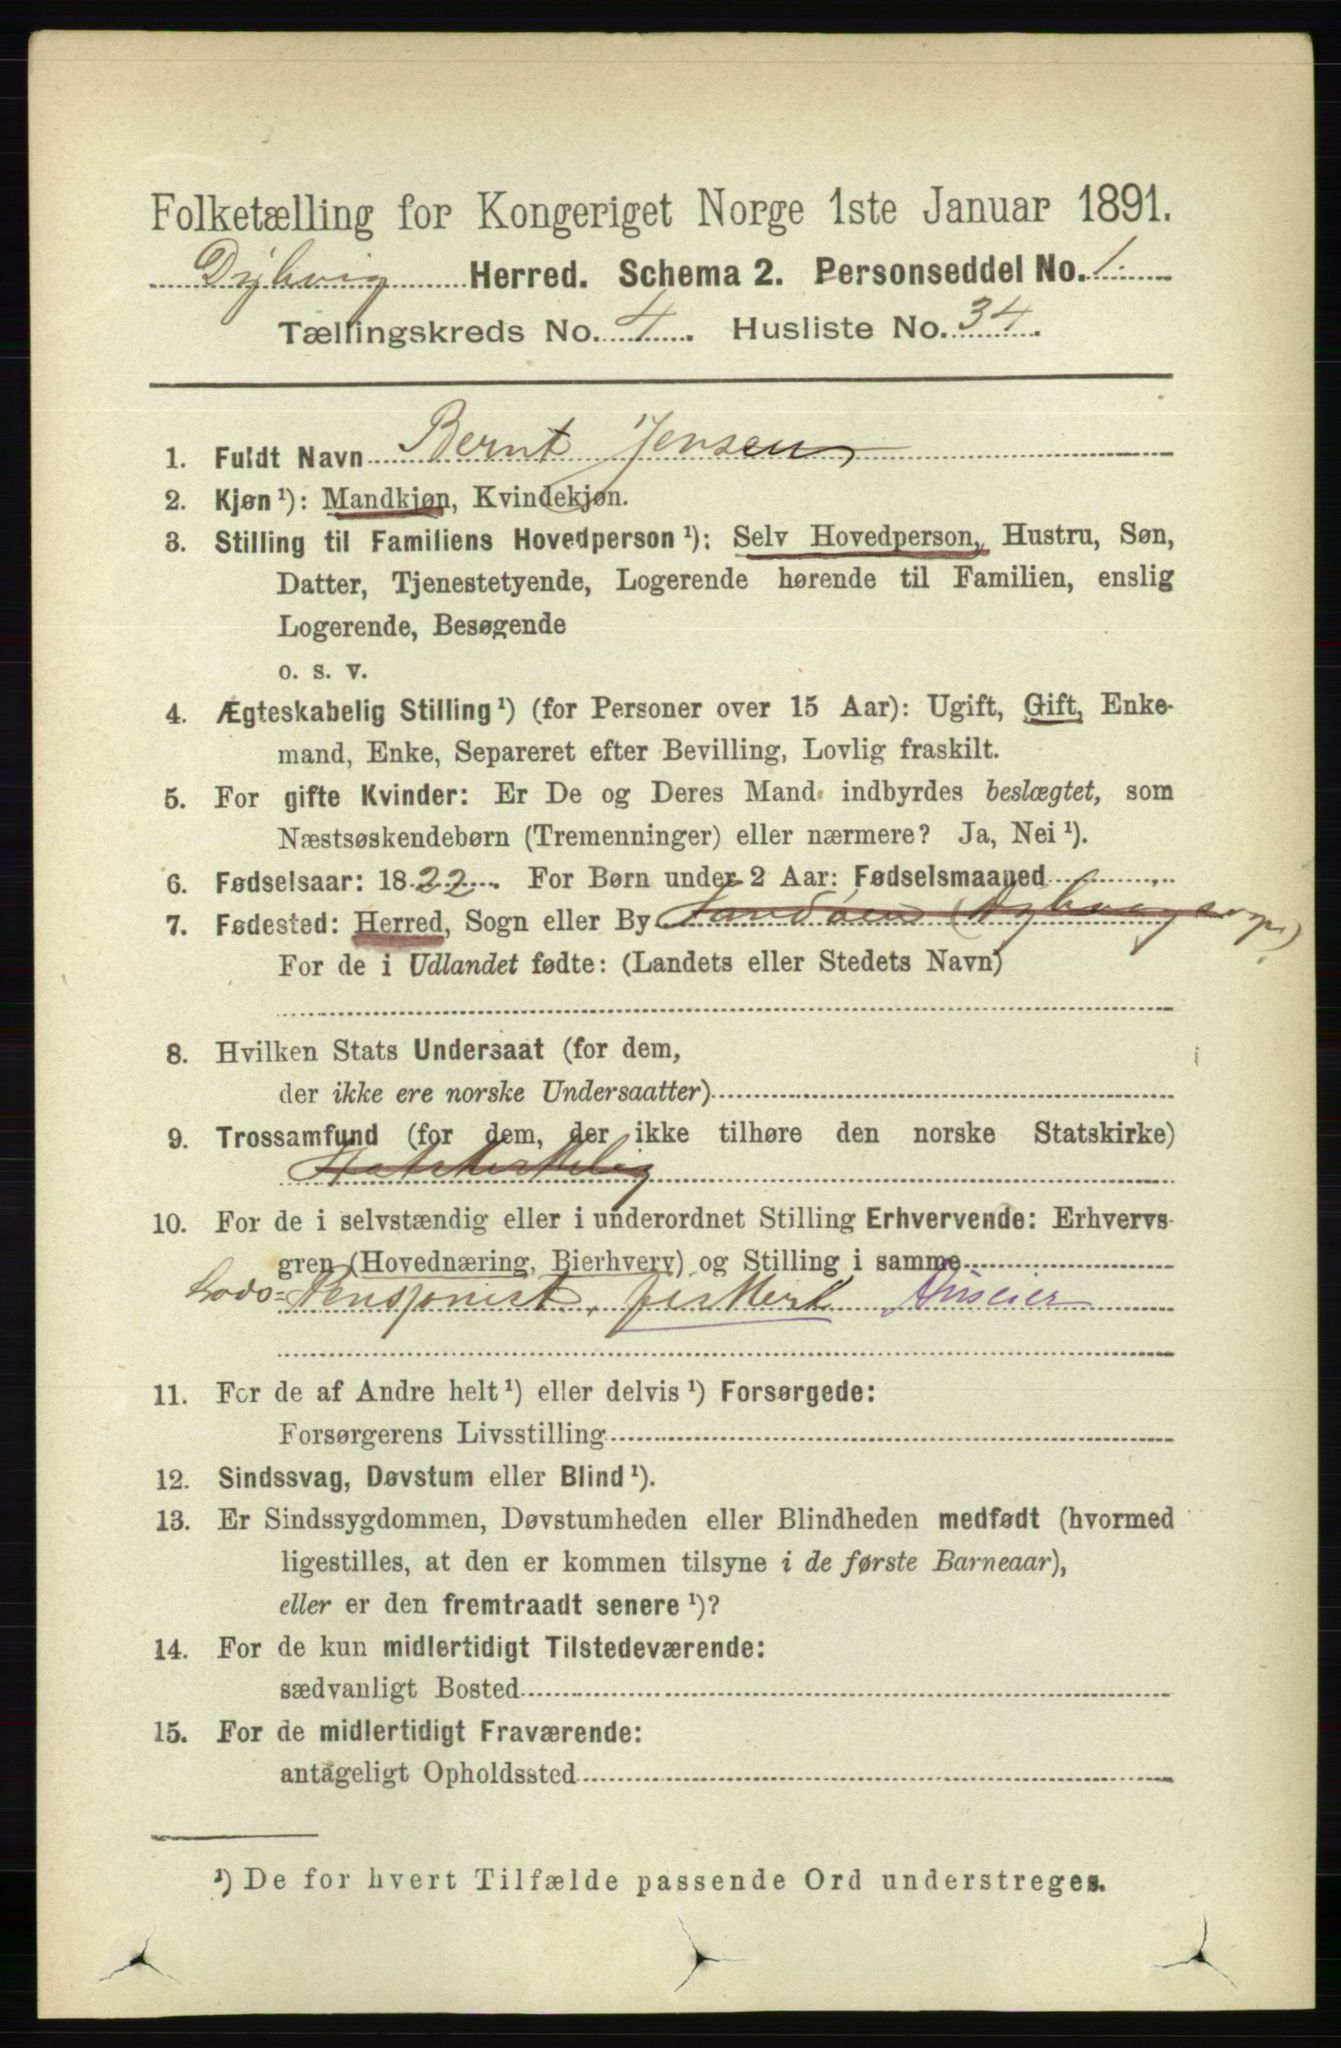 Folketælling for Kongeriget Norge 1ste Januar 1891.
Dybvig Herred. Schema 2. Personseddel No. 1.
Tællingskreds No. 4. Husliste No. 34.
1. Fuldt Navn Bernt Jensen
2. Kjøn ¹): Mandkjøn, Kvindekjøn.
3. Stilling til Familiens Hovedperson ¹): Selv Hovedperson, Hustru, Søn,
Datter, Tjenestetyende, Logerende hørende til Familien, enslig
Logerende, Besøgende
o. s. v.
4. Ægteskabelig Stilling ¹) (for Personer over 15 Aar): Ugift, Gift, Enke-
mand, Enke, Separeret efter Bevilling, Lovlig fraskilt.
5. For gifte Kvinder: Er De og Deres Mand indbyrdes beslægtet, som
Næstsøskendebørn (Tremenninger) eller nærmere? Ja, Nei ¹).
6. Fødselsaar: 1822. For Børn under 2 Aar: Fødselsmaaned
7. Fødested: Herred, Sogn eller By Sandøen (Dybvaag sogn)
For de i Udlandet fødte: (Landets eller Stedets Navn)
8. Hvilken Stats Undersaat (for dem,
der ikke ere norske Undersaatter)
9. Trossamfund (for dem, der ikke tilhøre den norske Statskirke)
Statskirkelig
10. For de i selvstændig eller i underordnet Stilling Erhvervende: Erhvervs-
gren (Hovednæring, Bierhverv) og Stilling i samme
Lods= Pensjonist, fisker Huseier
11. For de af Andre helt ¹) eller delvis ¹) Forsørgede:
Forsørgerens Livsstilling
12. Sindssvag, Døvstum eller Blind ¹).
13. Er Sindssygdommen, Døvstumheden eller Blindheden medfødt (hvormed
ligestilles, at den er kommen tilsyne i de første Barneaar),
eller er den fremtraadt senere ¹)?
14. For de kun midlertidigt Tilstedeværende:
sædvanligt Bosted
15. For de midlertidigt Fraværende:
antageligt Opholdssted
¹) De for hvert Tilfælde passende Ord understreges.